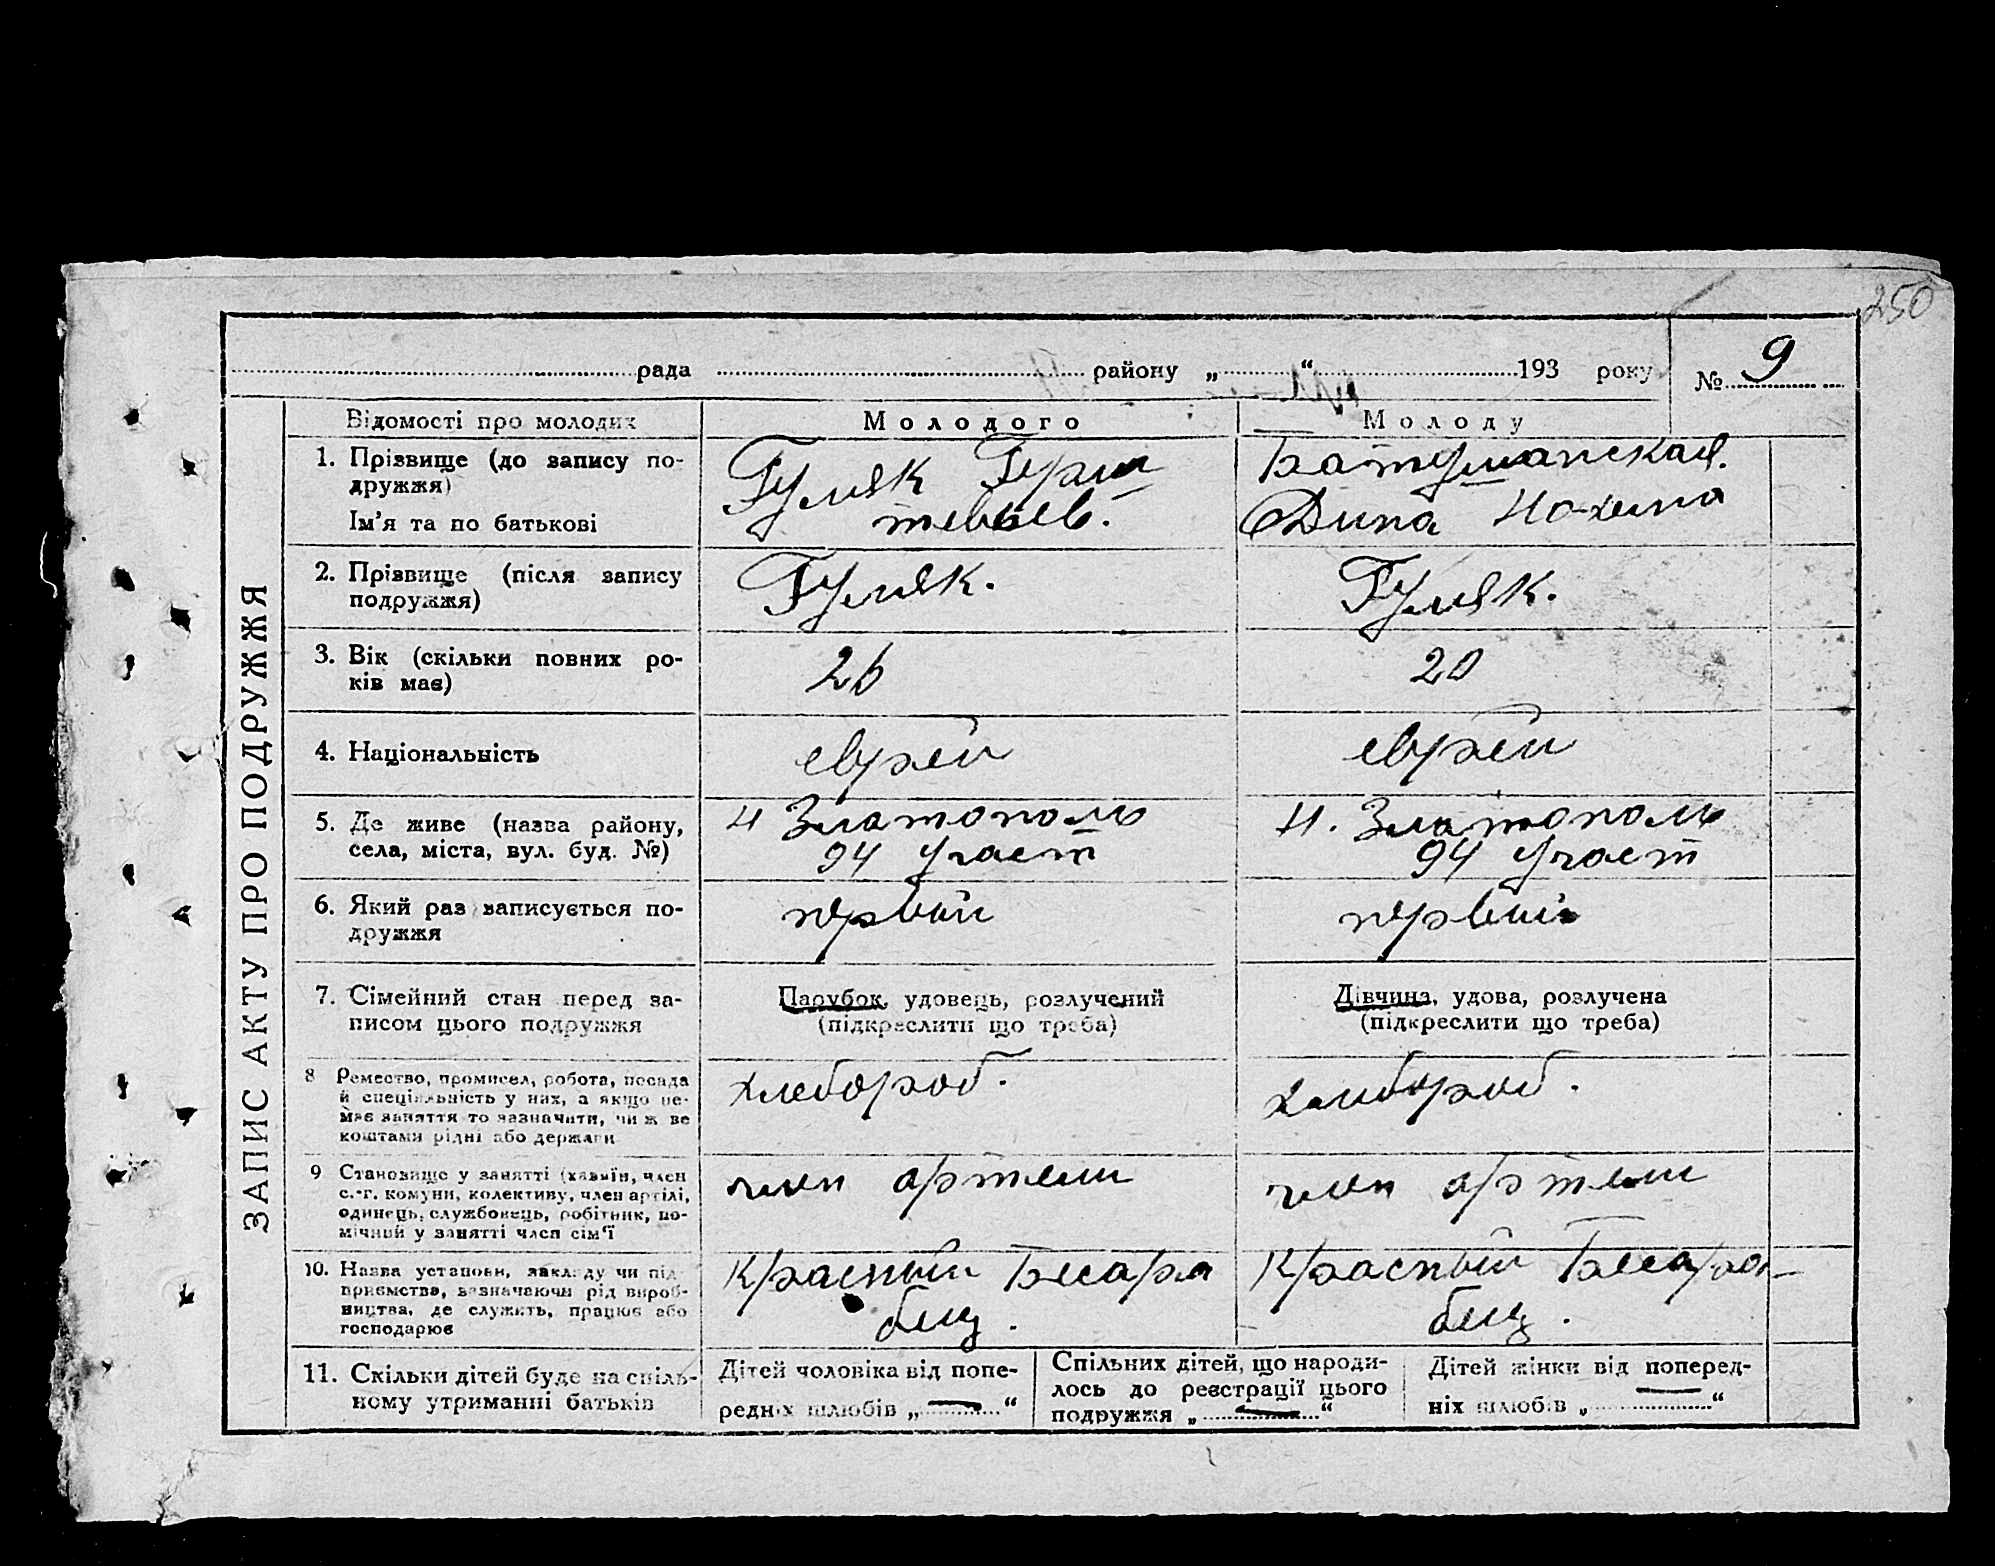 250
рада района „ “ 193 року № 9
ЗАПИС АКТУ ПРО ПОДРУЖЖЯ
Відомості про молодих Молодого Молоду
1. Прізвище (до запису по-
дружжя)
Ім'я та по батькові
Гуляк Герш
тевьев.
Батушанская.
Дина Нохима
2. Прізвище (після запису
подружжя)
Гуляк.
Гуляк.
3. Вік (скільки повних ро-
ків має)
26
20
4. Національність
еврей
еврей
5. Де живе (назва району,
села, міста, вул. буд. №)
Н Златополь
94 участ
Н. Златополь
94 участ
6. Який раз записується по-
дружжя
первый
первый
7. Сімейний стан перед за-
писом цього подружжя
Парубок, удовець, розлучений
(підкреслити що треба)
Дівчина, удова, розлучена
(підкреслити що треба)
8 Ремество, промисел, робота, посада
й спеціальність у них, а якщо не-
має заняття то зазначити, чи ж ве
коштами рідні або держави
хлебороб.
хлибороб.
9 Становище у занятті (хазяїн, член
с.-г. комуни, колективу, член артілі,
одинець, службовець, робітник, по-
мічний у занятті член сім'ї
член артели
член артели
10. Назва установи, закладу чи під-
приємства, зазначаючи рід вироб-
ництва, де служить, працює або
господарює
Красный Бесара
бец.
Красный Бесара-
бец.
11. Скільки дітей буде на спіль-
ному утриманні батьків
Дітей чоловіка від попе-
редніх шлюбів „ — “
Спільних дітей, що народи-
лось до реєстрації цього
подружжя „ — “
Дітей жінки від поперед-
ніх шлюбів „ — “